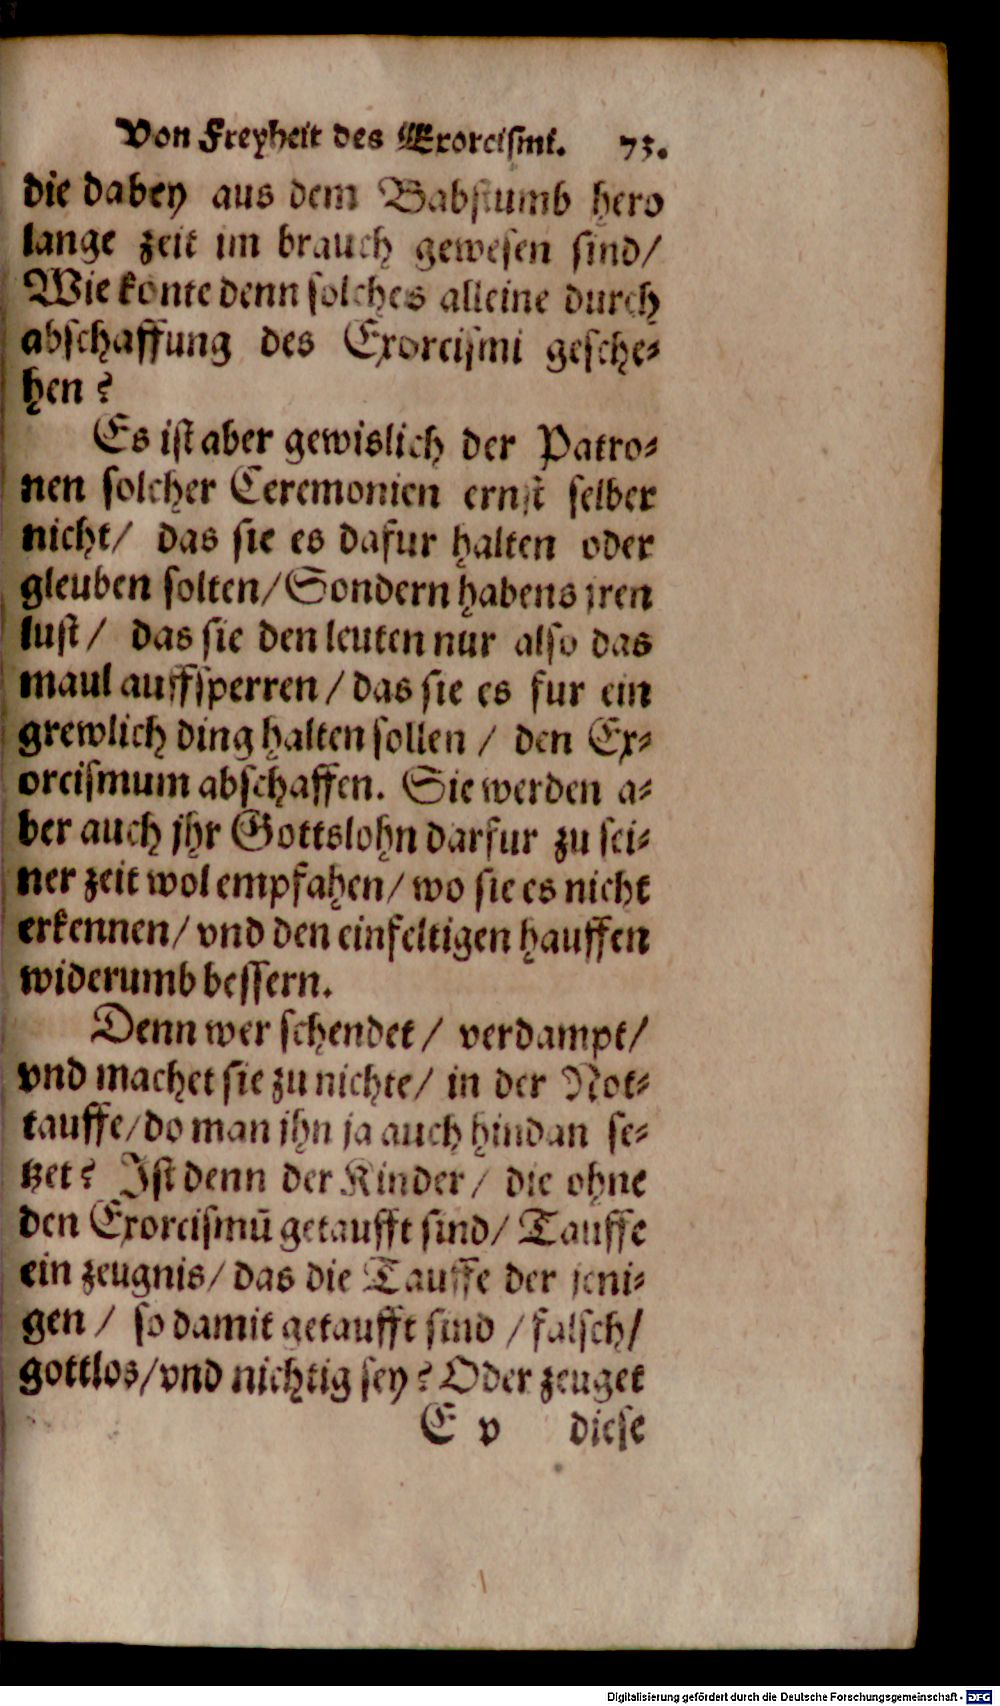 Von Freyheit des Exorcismi. 73.
die dabey aus dem Babstumb hero
lange zeit im brauch gewesen sind/
Wie konte denn solches alleine durch
abschaffung des Exorcismi gesche-
hen?
Es ist aber gewislich der Patro-
nen solcher Ceremonien ernst selber
nicht/ das sie es dafur halten oder
gleuben solten/ Sondern habens jren
lust/ das sie den leuten nur also das
maul auffsperren/ das sie es fur ein
grewlich ding halten sollen/ den Ex-
orcismum abschaffen. Sie werden a-
ber auch jhr Gottslohn darfur zu sei-
ner zeit wol empfahen/ wo sie es nicht
erkennen/ vnd den einfeltigen hauffen
widerumb bessern.
Denn wer schendet/ verdampt/
vnd machet sie zu nichte/ in der Not-
tauffe/ do man jhn ja auch hindan se-
tzet? Ist denn der Kinder/ die ohne
den Exorcismū getaufft sind/ Tauffe
ein zeugnis/ das die Tauffe der jeni-
gen/ so damit getaufft sind/ falsch/
gottlos/ vnd nichtig sey? Oder zeuget
E v diese
Digitalisierung gefördert durch die Deutsche Forschungsgemeinschaft - DFG